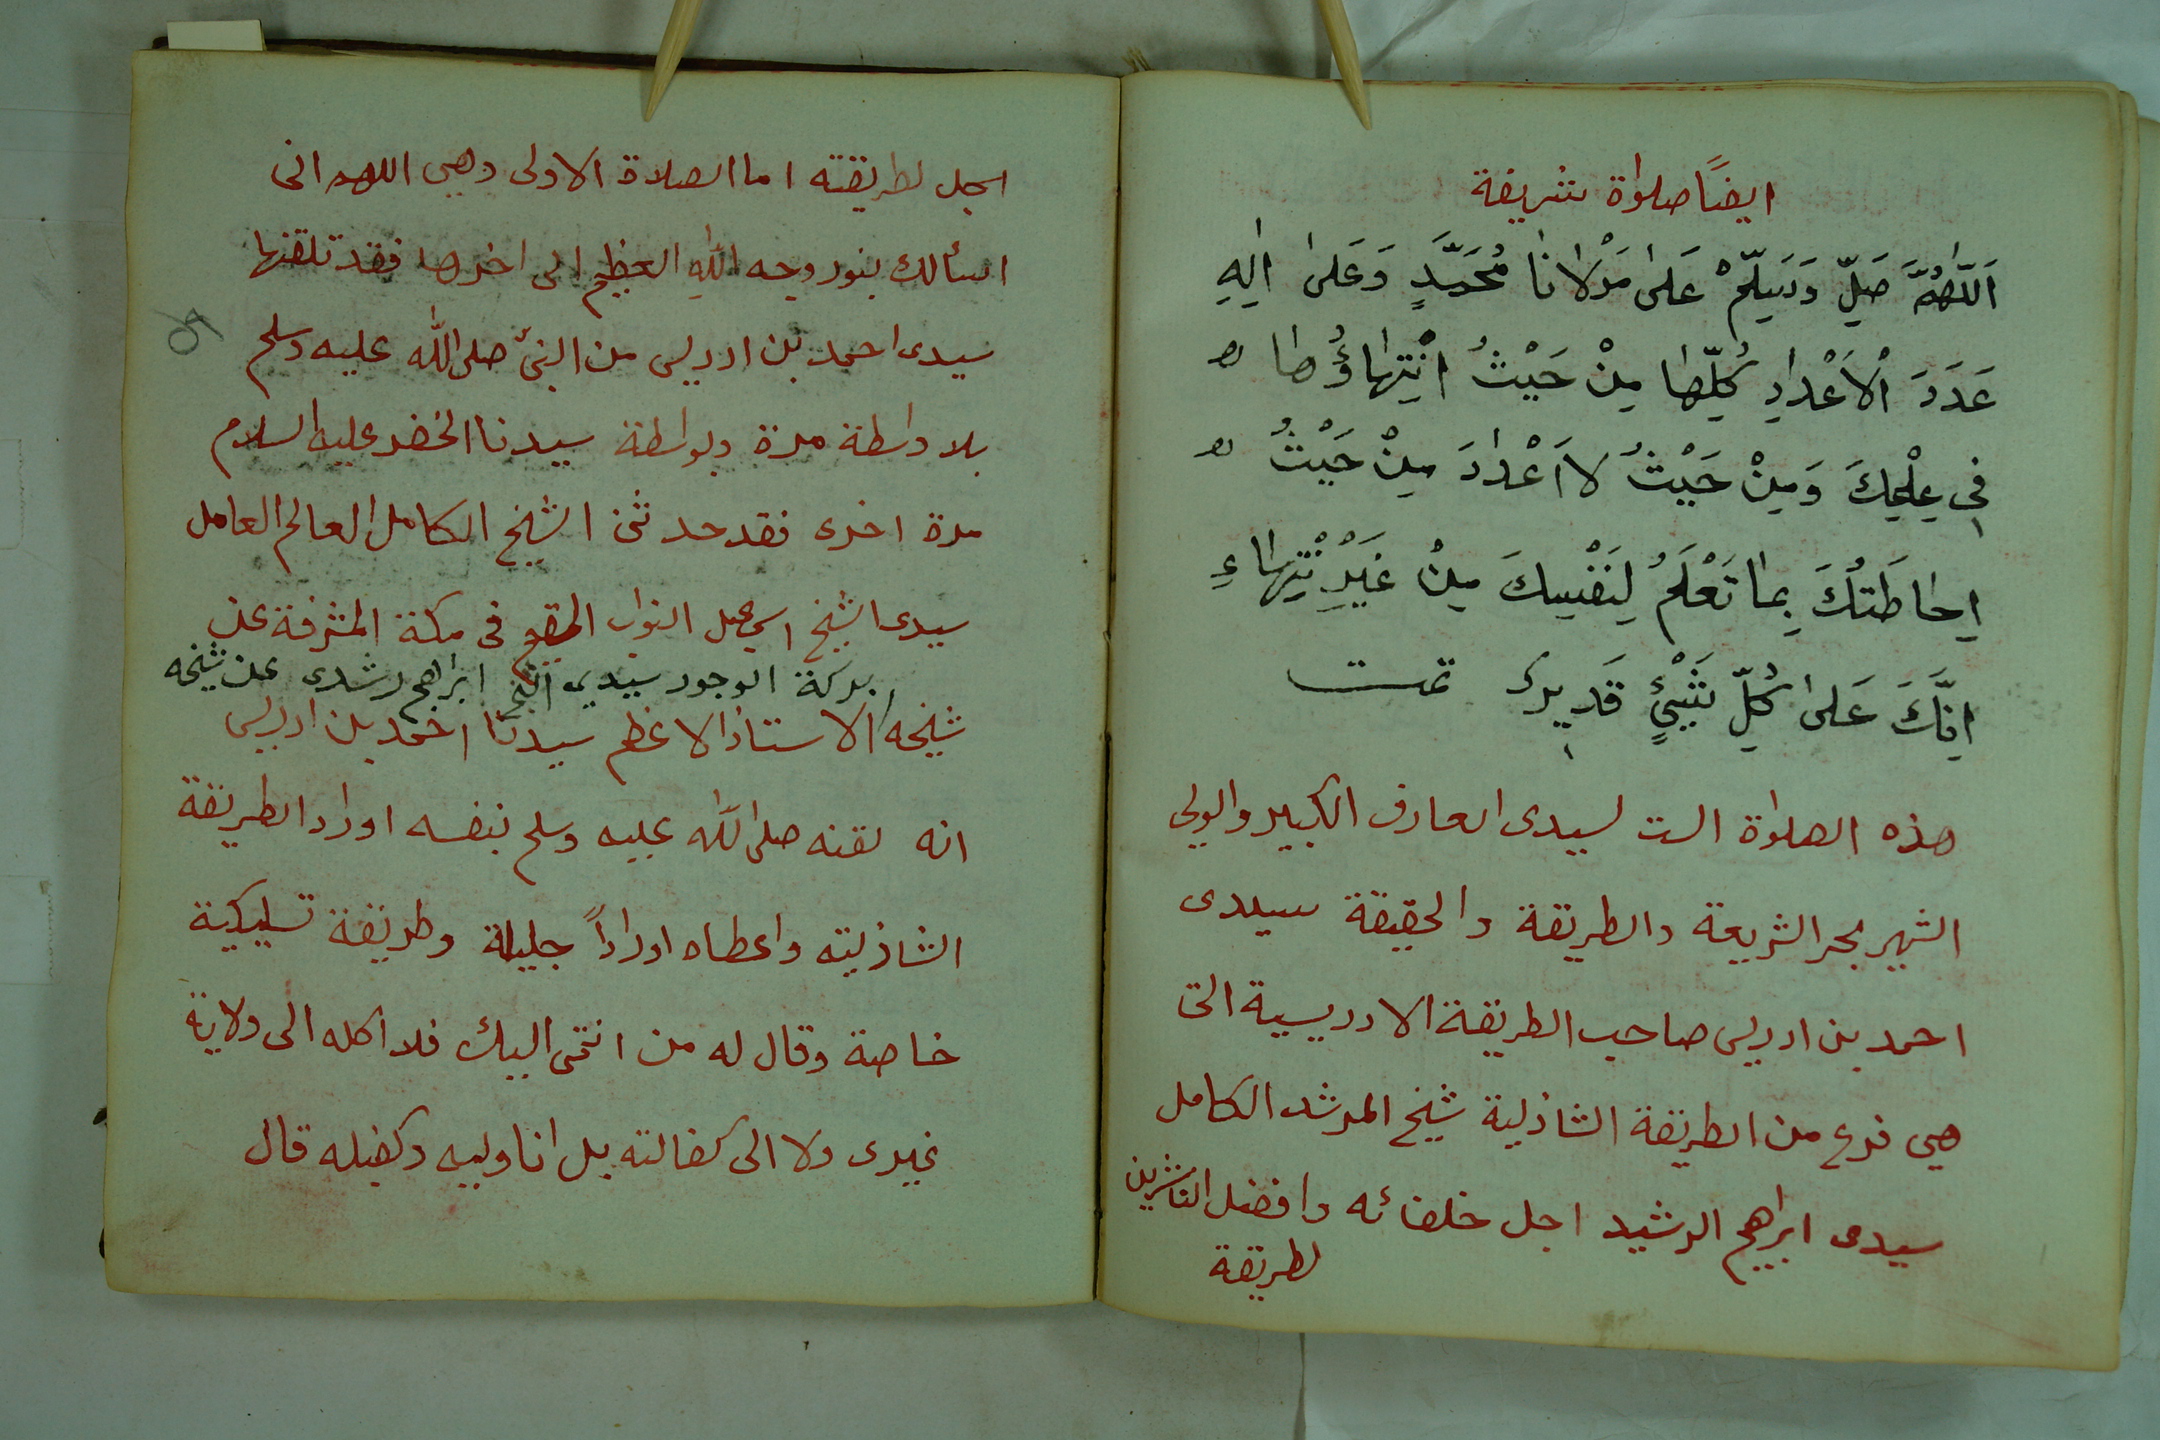 ايضًا صلواة شريفة
اَللّٰهُمَّ صَلِّ وَسَلِّمْ عَلٰى مَوْلَانَا مُحَمَّدٍ وَعَلٰى اٰلِهِ
عَدَدَ الْاَعْدَادِ كُلِّهَا مِنْ حَيْثُ انْتِهَاؤُهَا
فِى عِلْمِكَ وَمِنْ حَيْثُ لَا اَعْدَادَ مِنْ حَيْثُ
اِحَاطَتُكَ بِمَا تَعْلَمُ لِنَفْسِكَ مِنْ غَيْرِ نْتِهَاءِ
اِنَّكَ عَلٰى كُلِّ شَيْئٍ قَدِيرٌ تمت
هذه الصلواة الست لسيدى العارف الكبير والولى
الشهير بحر الشريعة والطريقة والحقيقة سيدى
احمد بن ادريس صاحب الطريقة الادريسية التى
هى فرع من الطريقة الشاذلية شيخ المرشد الكامل
سيدى ابراهيم الرشيد اجل خلفائه وافضل الناشرين
لطريقة
اجل لطريقته اما الصلاة الاولى وهى اللهم انى
اسألك بنور وجه الله العظيم الى اخرها فقد تلقنها
سيدى احمد بن ادريس من النبى صلى الله عليه وسلم
بلا واسطة مرة وبواسطة سيدنا الخضر عليه السلام
مرة اخرى فقد حدثنى الشيخ الكامل العالم العامل
سيدى الشيخ اسمعيل النواب المقيم فى مكة المشرفة عن
بركة الوجود سيدى الشيخ ابراهيم رشدى عن شيخه
شيخه الاستاذ الاعظم سيدنا احمد بن ادريس
انه لقنه صلى الله عليه وسلم بنفسه اوراد الطريقة
الشاذليته واعطاه اوراداً جليلة وطريقة تسليكية
خاصة وقال له من انتمى اليك فلا اكله الى ولاية
غيرى ولا الى كفالته بل انا وليه وكفيله قال